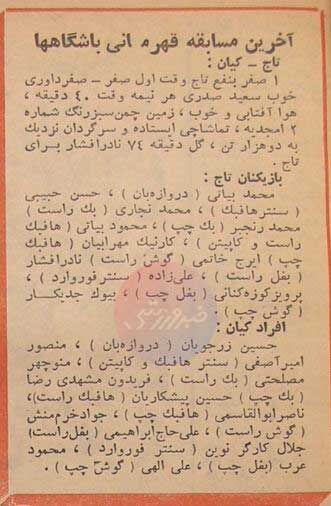 آخرین مسابقه قهرمانی باشگاهها
تاج - کیان :
۱ صفر بنفع تاج وقت اول صفر - صفرداوری
خوب سعید صدری هر نیمه وقت ۴۰ دقیقه ،
هوا آفتابی و خوب ، زمین چمن سبزرنگ شماره
۲ امجدیه ، تماشاچی ایستاده و سرگردان نزدیک
به دوهزار تن ، گل دقیقه ۷۴ نادرافشار برای
تاج .
بازیکنان تاج :
محمد بیاتی ( دروازه‌بان ) ، حسن حبیبی
( سنترهافبک ) ، محمد نجاری ( بک راست )
محمد رنجبر ( بک چپ ) ، محمود بیاتی ( هافبک
راست و کاپیتن ) ، کارنیک مهرابیان ( هافبک
چپ ) ایرج خاتمی ( گوش راست ) نادرافشار
( بغل راست ) ، علی‌زاده ( سنترفوروارد ) ،
پرویزکوزه‌کنانی ( بغل چپ ) ، بیوک جدیکار
( گوش چپ ) .
افراد کیان :
حسین زرجویان ( دروازه‌بان ) ، منصور
امیرآصفی ( سنتر هافبک و کاپیتن ) ، منوچهر
مصلحتی ( بک راست ) ، فریدون مشهدی رضا
( بک چپ ) حسین پیشکاریان ( هافبک راست ) ،
ناصرابوالقاسمی ( هافبک چپ ) ، جوادخرم‌منش
( گوش راست ) ، علی‌حاج‌ابراهیمی ( بغل‌راست )
جلال کارگر نوین ( سنتر فوروارد ) ، محمود
عرب ( بغل چپ ) ، علی الهی ( گوش چپ ) .
خبرورزشی